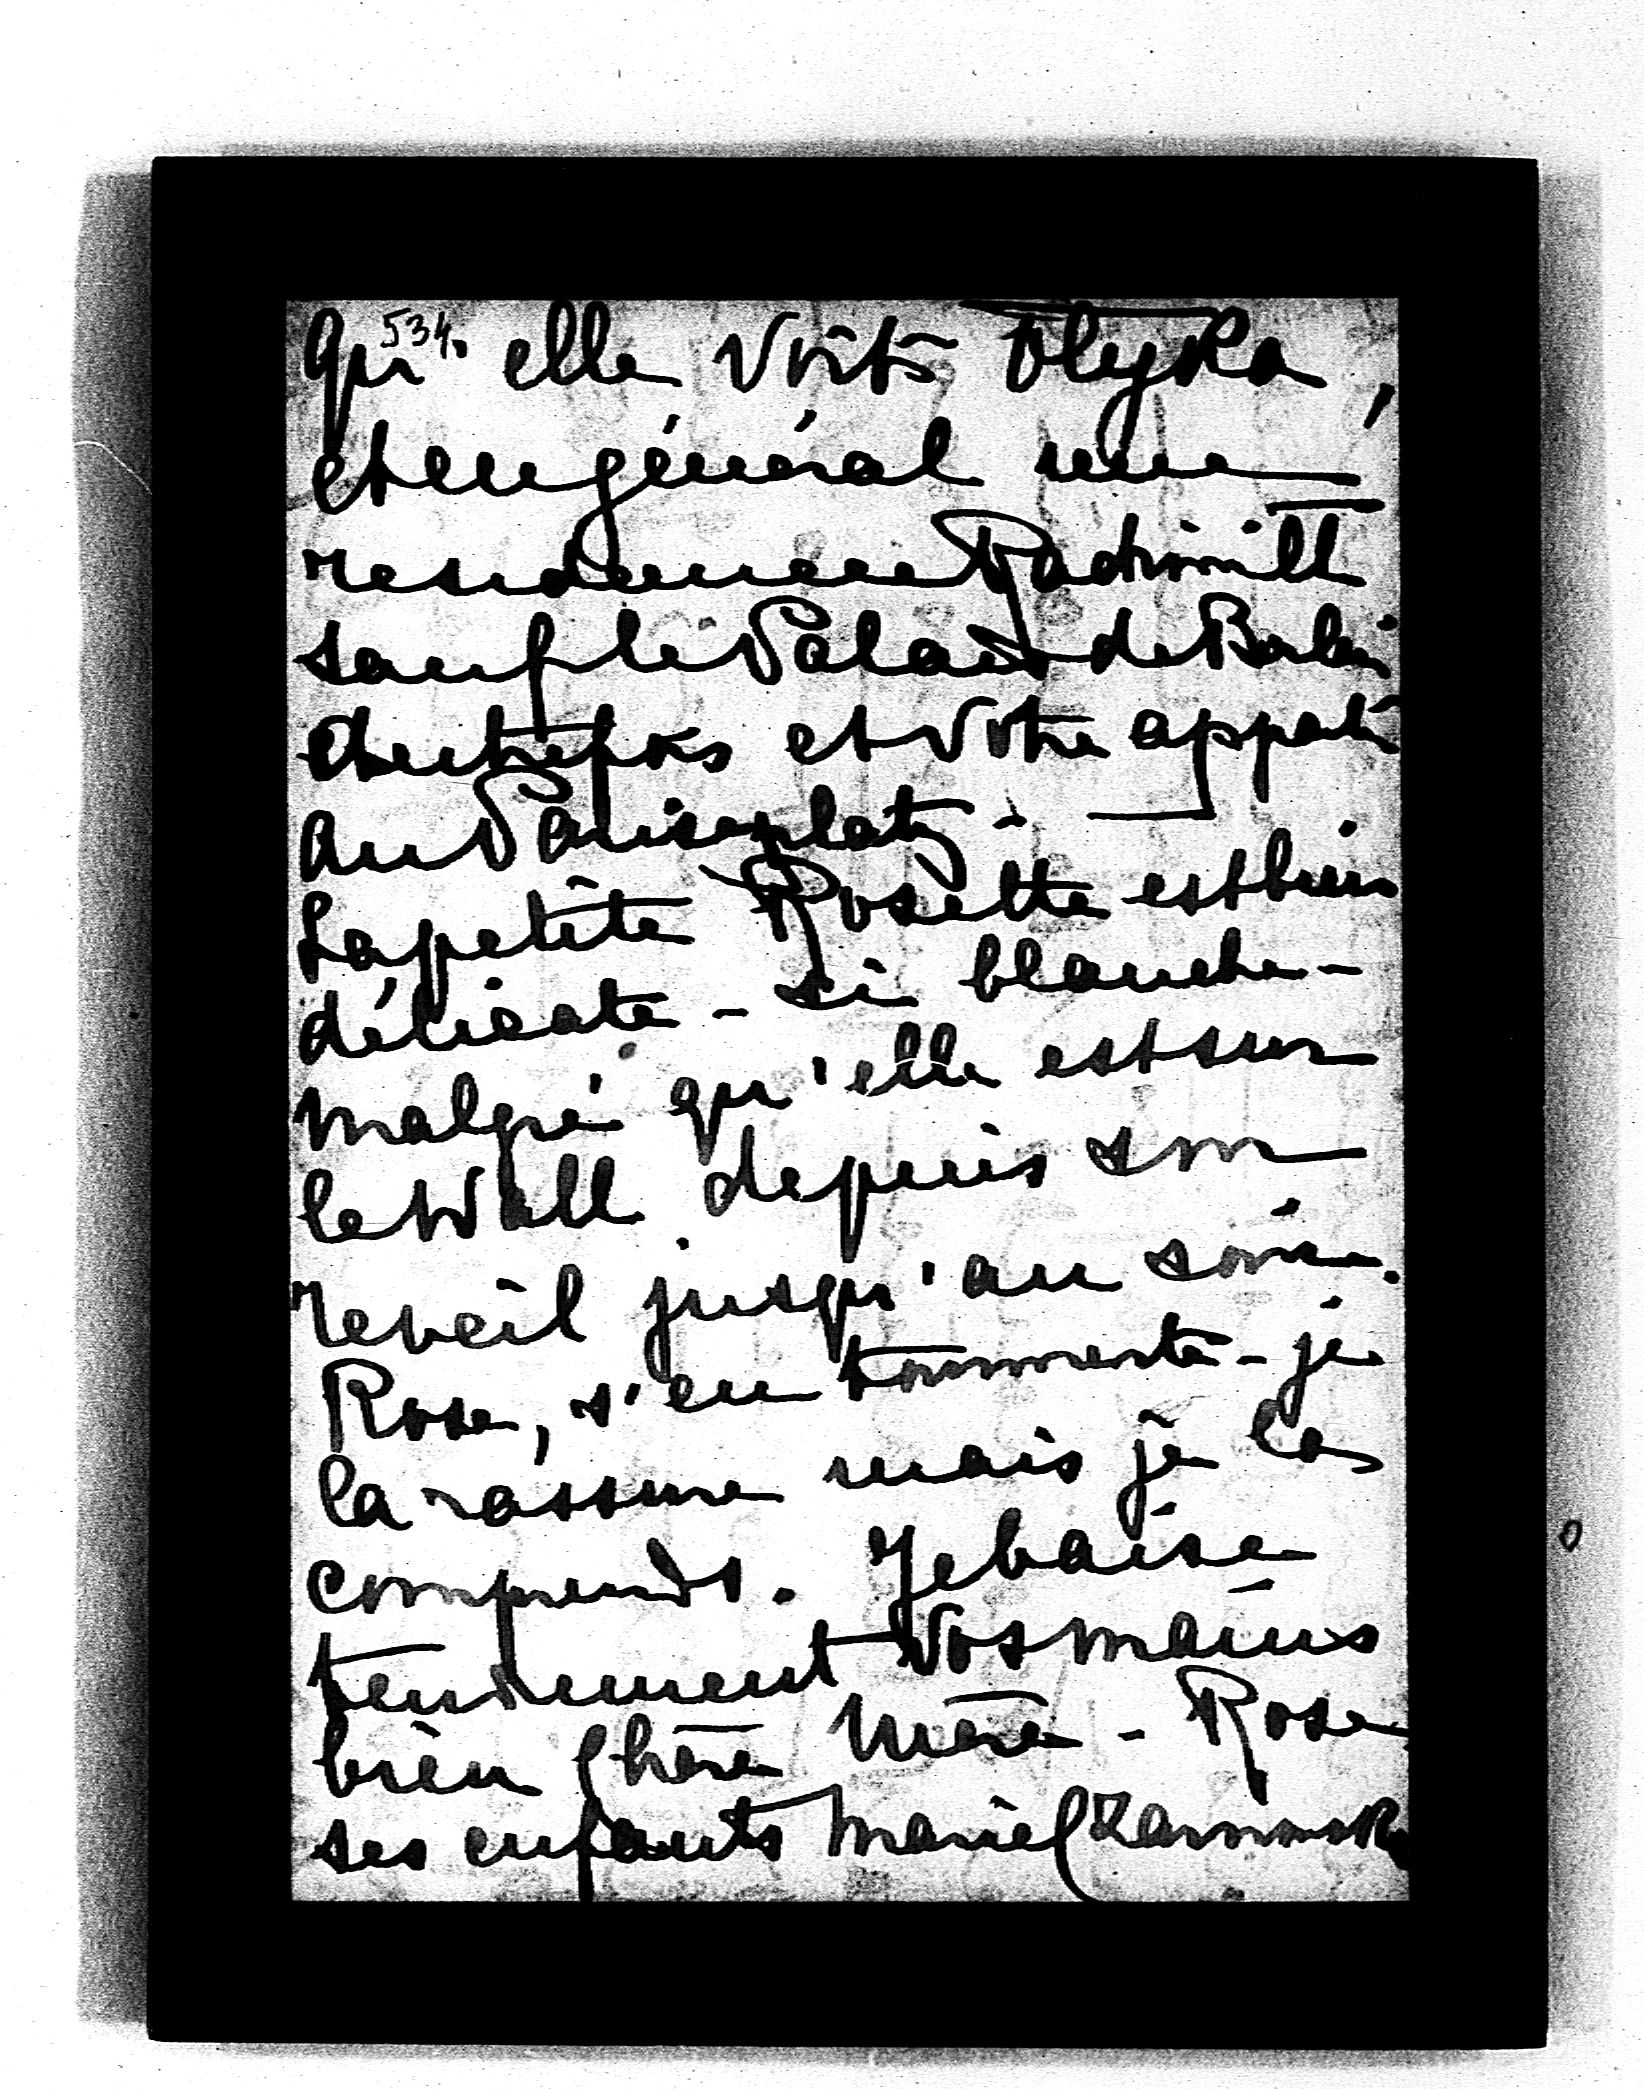 534.
qu'elle voits Olyka,
et en général une
residence Radziwill
sauf le Palais de Berlin
autrefois et votre appart.
au Pariserplatz -
La petite Rosette est bien
délicate - si blanche -
malgré qu'elle est sur
le Wall depuis son
reveil jusqu'au soir.
Rose, s'en tourmente - je
la rassure mais je la
comprends. Je baise
tendrement vos mains
bien chère Mère - Rose
ses enfants Marie Czarnowsk